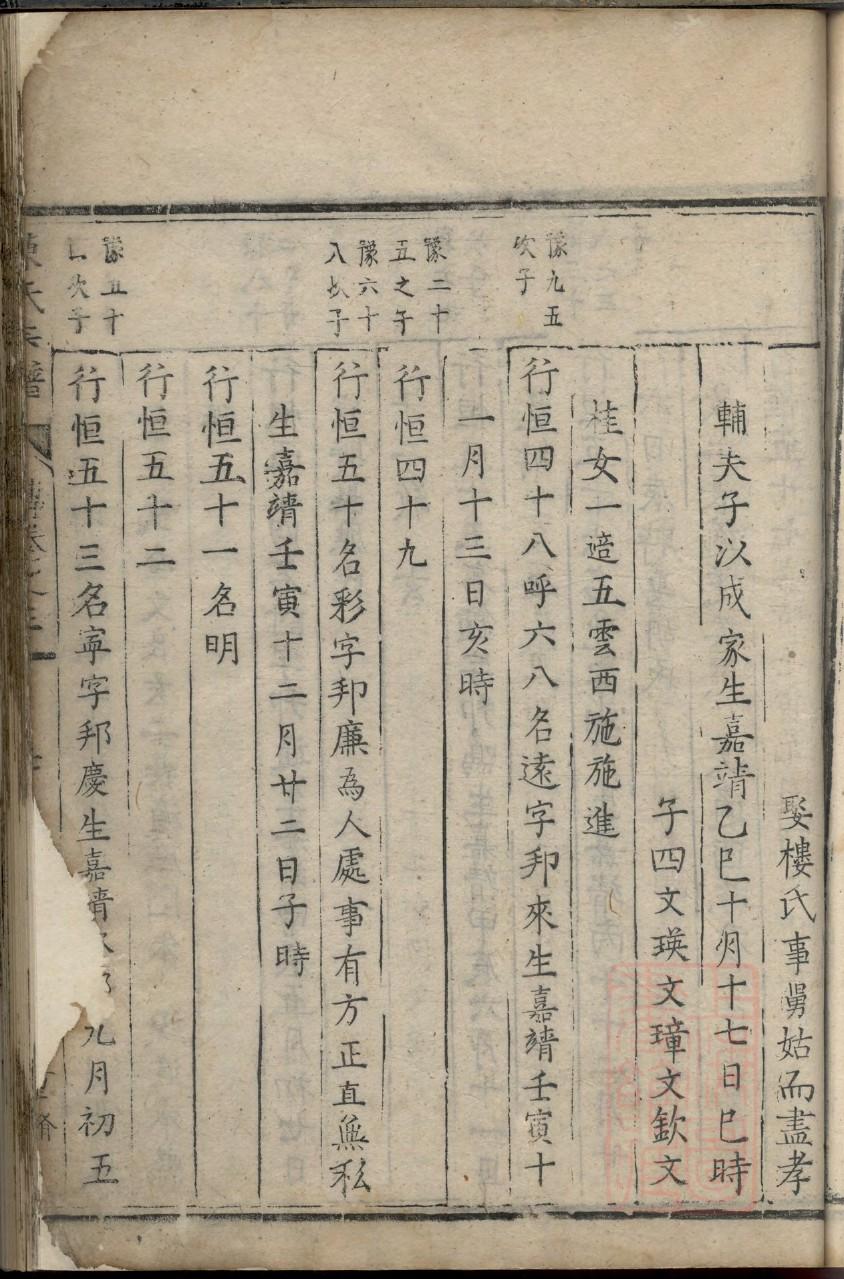 娶樓氏事舅姑而盡孝
輔夫子以成家生嘉靖乙巳十月十七日巳時
子四文瑛文璋文欽文
桂女一適五雲西施施進
豫九五
次子
行恒四十八呼六八名遠字邦來生嘉靖壬寅十
一月十三日亥時
豫二十
五之子
行恒四十九
豫六十
八次子
行恒五十名彩字邦廉為人處事有方正直無私
生嘉靖壬寅十二月廿二日子時
行恒五十一名明
行恒五十二
豫五十
次子
行恒五十三名寧字邦慶生嘉靖九月初五
陳氏宗譜